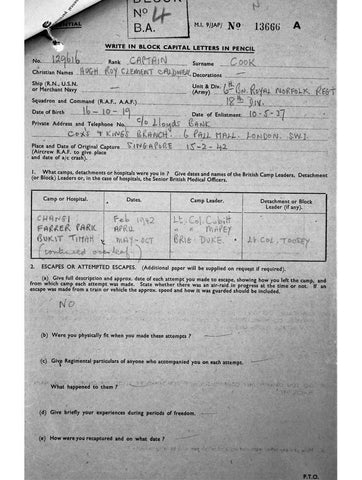 BLOCK
Nº 4
B.A.
CONFIDENTIAL
M.I. 9/JAP/ Nº 13666 A
WRITE IN BLOCK CAPITAL LETTERS IN PENCIL
No. 129616 Rank CAPTAIN Surname COOK
Christian Names HUGH ROY CLEMENT CALDWELL Decorations —
Ship (R.N., U.S.N. or Merchant Navy) - Unit & Div. (Army) 6th Bn. ROYAL NORFOLK REGT
18th DIV.
Squadron and Command (R.A.F., A.A.F.)
Date of Birth 16-10-19 Date of Enlistment 10-5-37
Private Address and Telephone No. c/o LLOYDS BANK
COX'S & KINGS BRANCH. 6 PALL MALL. LONDON. SW1
Place and Date of Original Capture SINGAPORE 15-2-42
(Aircrew R.A.F. to give place
and date of a/c crash).
1. What camps, detachments or hospitals were you in? Give dates and names of the British Camp Leaders, Detachment
(or Block) Leaders or, in the case of hospitals, the Senior British Medical Officers.
Camp or Hospital. Dates. Camp Leader. Detachment or Block Leader (if any).
CHANGI Feb 1942 Lt. Col. Cubitt
FARRER PARK APRIL " "
BUKIT TIMAH MAY-OCT BRIG. DUKE. Lt. COL. TOOSEY
(continued overleaf)
2. ESCAPES OR ATTEMPTED ESCAPES. (Additional paper will be supplied on request if required).
(a) Give full description and approx. date of each attempt you made to escape, showing how you left the camp, and
from which camp each attempt was made. State whether there was an air-raid in progress at the time or not. If an
escape was made from a train or vehicle the approx. speed and how it was guarded should be included.
NO
(b) Were you physically fit when you made these attempts?
(c) Give Regimental particulars of anyone who accompanied you on each attempt.
What happened to them?
(d) Give briefly your experiences during periods of freedom.
(e) How were you recaptured and on what date?
P.T.O.